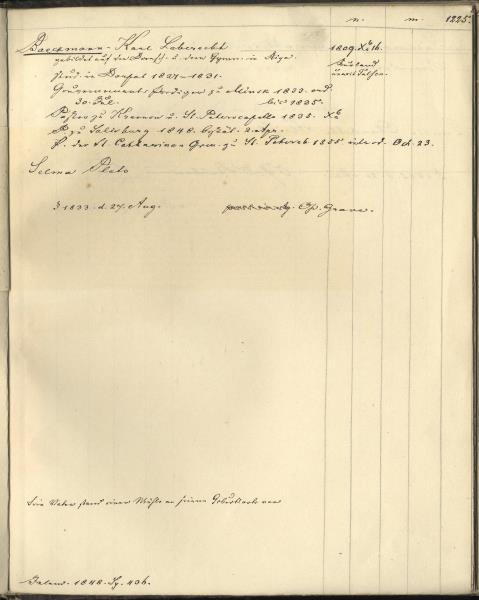 n. m. 1225.
Baeckmann - Karl Leberecht 1809. Xbr 16.
gebildet auf der Domsch. u. dem Gymn. in Riga
stud. in Dorpat 1827-1831.
Gouvernements Prediger zu Minsk 1833. ord.
30. Jul. bis 1835.
Pastor zu Krasnow u. St. Peterscapelle 1835. Xbr
P. zu Salisburg 1848. 2. Apr.
P. der St. Catharinen Gem. zu St. Petersb. 1855 introd. Oct. 23.
Selma Plato
1833. d. 27. Aug. Grave.
Sein Vater stand einer Mühle an seinem Geburtsorte vor
Inland. 1848. Sp. 406.